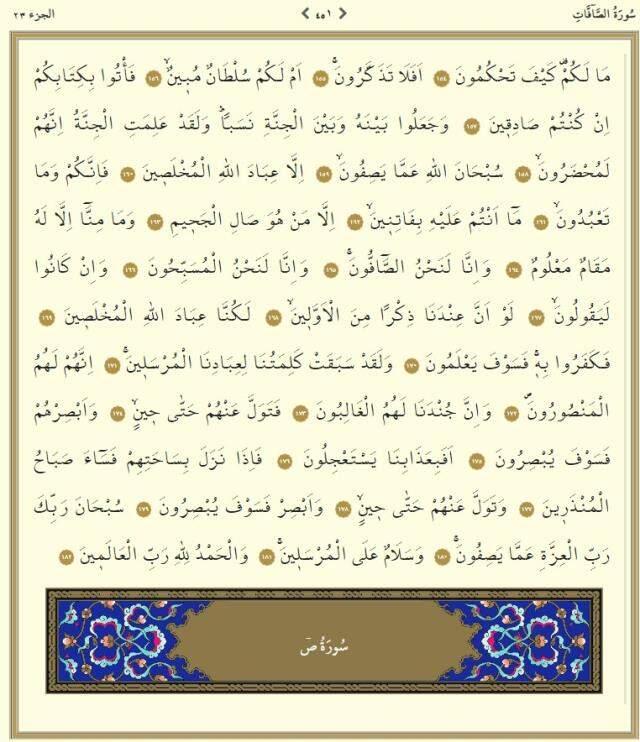 سُورَةُ الصَّٓافَّاتِ ٤٥١ الجزء ٢٣
مَا لَكُمْ۠ كَيْفَ تَحْكُمُونَ ١٥٤ اَفَلَا تَذَكَّرُونَۚ ١٥٥ اَمْ لَكُمْ سُلْطَانٌ مُب۪ينٌۙ ١٥٦ فَأْتُوا بِكِتَابِكُمْ
اِنْ كُنْتُمْ صَادِق۪ينَ ١٥٧ وَجَعَلُوا بَيْنَهُ وَبَيْنَ الْجِنَّةِ نَسَبًاۜ وَلَقَدْ عَلِمَتِ الْجِنَّةُ اِنَّهُمْ
لَمُحْضَرُونَۙ ١٥٨ سُبْحَانَ اللهِ عَمَّا يَصِفُونَۙ ١٥٩ اِلَّا عِبَادَ اللهِ الْمُخْلَص۪ينَ ١٦٠ فَاِنَّكُمْ وَمَا
تَعْبُدُونَۙ ١٦١ مَٓا اَنْتُمْ عَلَيْهِ بِفَاتِن۪ينَۙ ١٦٢ اِلَّا مَنْ هُوَ صَالِ الْجَح۪يمِ ١٦٣ وَمَا مِنَّٓا اِلَّا لَهُ
مَقَامٌ مَعْلُومٌ ١٦٤ وَاِنَّا لَنَحْنُ الصَّٓافُّونَۚ ١٦٥ وَاِنَّا لَنَحْنُ الْمُسَبِّحُونَ ١٦٦ وَاِنْ كَانُوا
لَيَقُولُونَۙ ١٦٧ لَوْ اَنَّ عِنْدَنَا ذِكْرًا مِنَ الْاَوَّل۪ينَۙ ١٦٨ لَكُنَّا عِبَادَ اللهِ الْمُخْلَص۪ينَ ١٦٩
فَكَفَرُوا بِه۪ۚ فَسَوْفَ يَعْلَمُونَ ١٧٠ وَلَقَدْ سَبَقَتْ كَلِمَتُنَا لِعِبَادِنَا الْمُرْسَل۪ينَۚ ١٧١ اِنَّهُمْ لَهُمُ
الْمَنْصُورُونَۖ ١٧٢ وَاِنَّ جُنْدَنَا لَهُمُ الْغَالِبُونَ ١٧٣ فَتَوَلَّ عَنْهُمْ حَتّٰى ح۪ينٍۙ ١٧٤ وَاَبْصِرْهُمْ
فَسَوْفَ يُبْصِرُونَ ١٧٥ اَفَبِعَذَابِنَا يَسْتَعْجِلُونَ ١٧٦ فَاِذَا نَزَلَ بِسَاحَتِهِمْ فَسَٓاءَ صَبَاحُ
الْمُنْذَر۪ينَ ١٧٧ وَتَوَلَّ عَنْهُمْ حَتّٰى ح۪ينٍۙ ١٧٨ وَاَبْصِرْ فَسَوْفَ يُبْصِرُونَ ١٧٩ سُبْحَانَ رَبِّكَ
رَبِّ الْعِزَّةِ عَمَّا يَصِفُونَۚ ١٨٠ وَسَلَامٌ عَلَى الْمُرْسَل۪ينَۚ ١٨١ وَالْحَمْدُ لِلهِ رَبِّ الْعَالَم۪ينَ ١٨٢
سُورَةُ صٓ